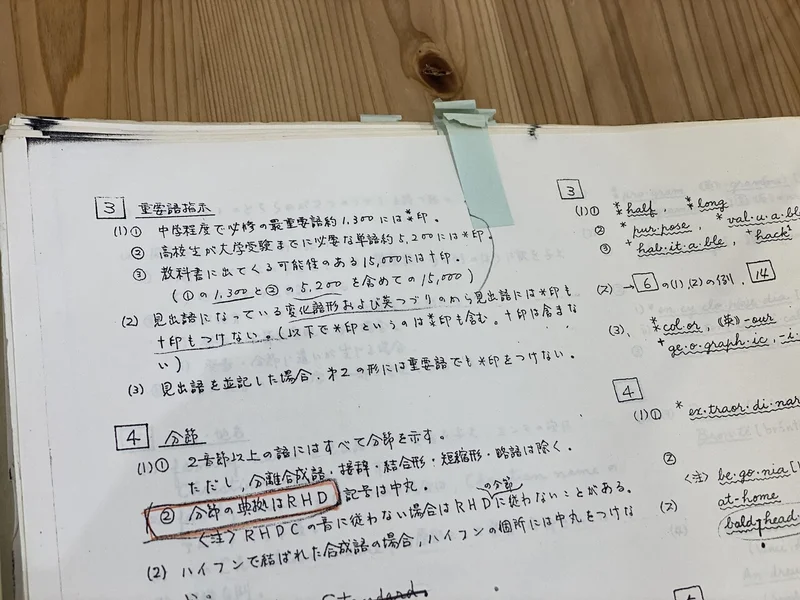 3 重要語指示
(1)① 中学程度で必修の最重要語約1,300には⁑印。
② 高校生が大学受験までに必要な単語約5,200には*印。
③ 教科書に出てくる可能性のある15,000には†印。
(①の1,300と②の5,200を含めての15,000)
(2) 見出語になっている変化語形および英つづりのから見出語には*印も
†印もつけない。(以下で*印というのは⁑印も含む。†印は含まな
い)
(3) 見出語を並記した場合、第2の形には重要語でも*印をつけない。
4 分節
(1)① 2音節以上の語にはすべて分節を示す。
ただし,分離合成語・接辞・結合形・短縮形・略語は除く。
② 分節の典拠はRHD 記号は中丸。
の分節
〈注〉RHDCの音に従わない場合はRHDに従わないことがある。
(2) ハイフンで結ばれた合成語の場合,ハイフンの個所には中丸をつけな
い。
3
(1)① ⁑half, ⁑long
② *pur·pose, *val·u·a·bl
③ †hab·it·a·ble, †hack¹
(2) →6の(1),(2)の例, 14
(3) ⁑col·or, 《英》-our
†ge·o·graph·ic, -i
4
(1)① *ex·traor·di·nar
②
〈注〉be·go·nia
(2) at-home
bald-head